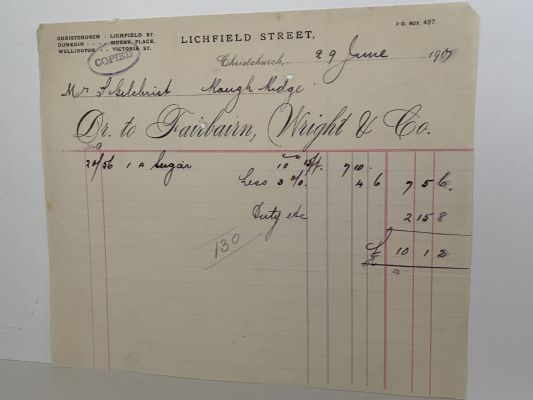 CHRISTCHURCH - LICHFIELD ST.
DUNEDIN . . . MORAY PLACE.
WELLINGTON . . VICTORIA ST.
COPIED
LICHFIELD STREET,
P.O. BOX 427.
Christchurch, 29 June 1907
Mr Gilchrist Rough Ridge
Dr. to Fairbairn, Wright & Co.
20/56 1 A Sugar 10 15/- 7 10 .
Less 3 %. 4 6 7 5 6.
Duty etc 2 15 8
130
£ 10 1 2